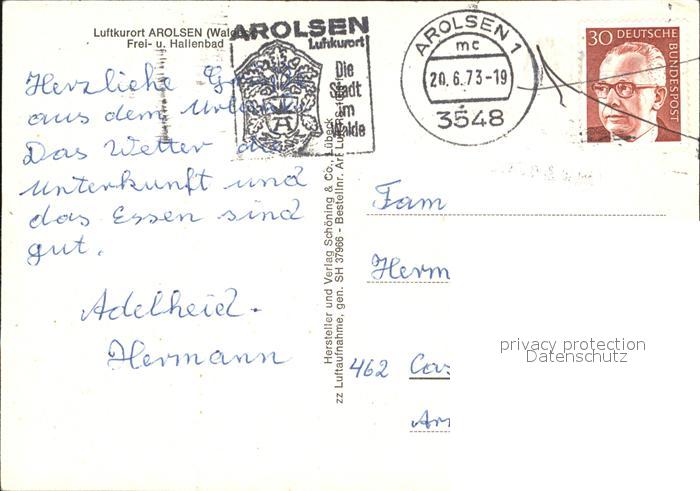 Luftkurort AROLSEN (Waldeck)
Frei- u. Hallenbad
AROLSEN
Luftkurort
Die
Stadt
im
Walde
AROLSEN 1
mc
20.6.73-19
3548
30 DEUTSCHE
BUNDESPOST
Herzliche Grüße
aus dem Urlaub
Das Wetter die
Unterkunft und
das Essen sind
gut.
Adelheid.
Hermann
Hersteller und Verlag Schöning & Co., Lübeck
zz Luftaufnahme, gen. SH 37966 - Bestellnr. Arl
Fam
Herm
462 Cas
privacy protection
Datenschutz